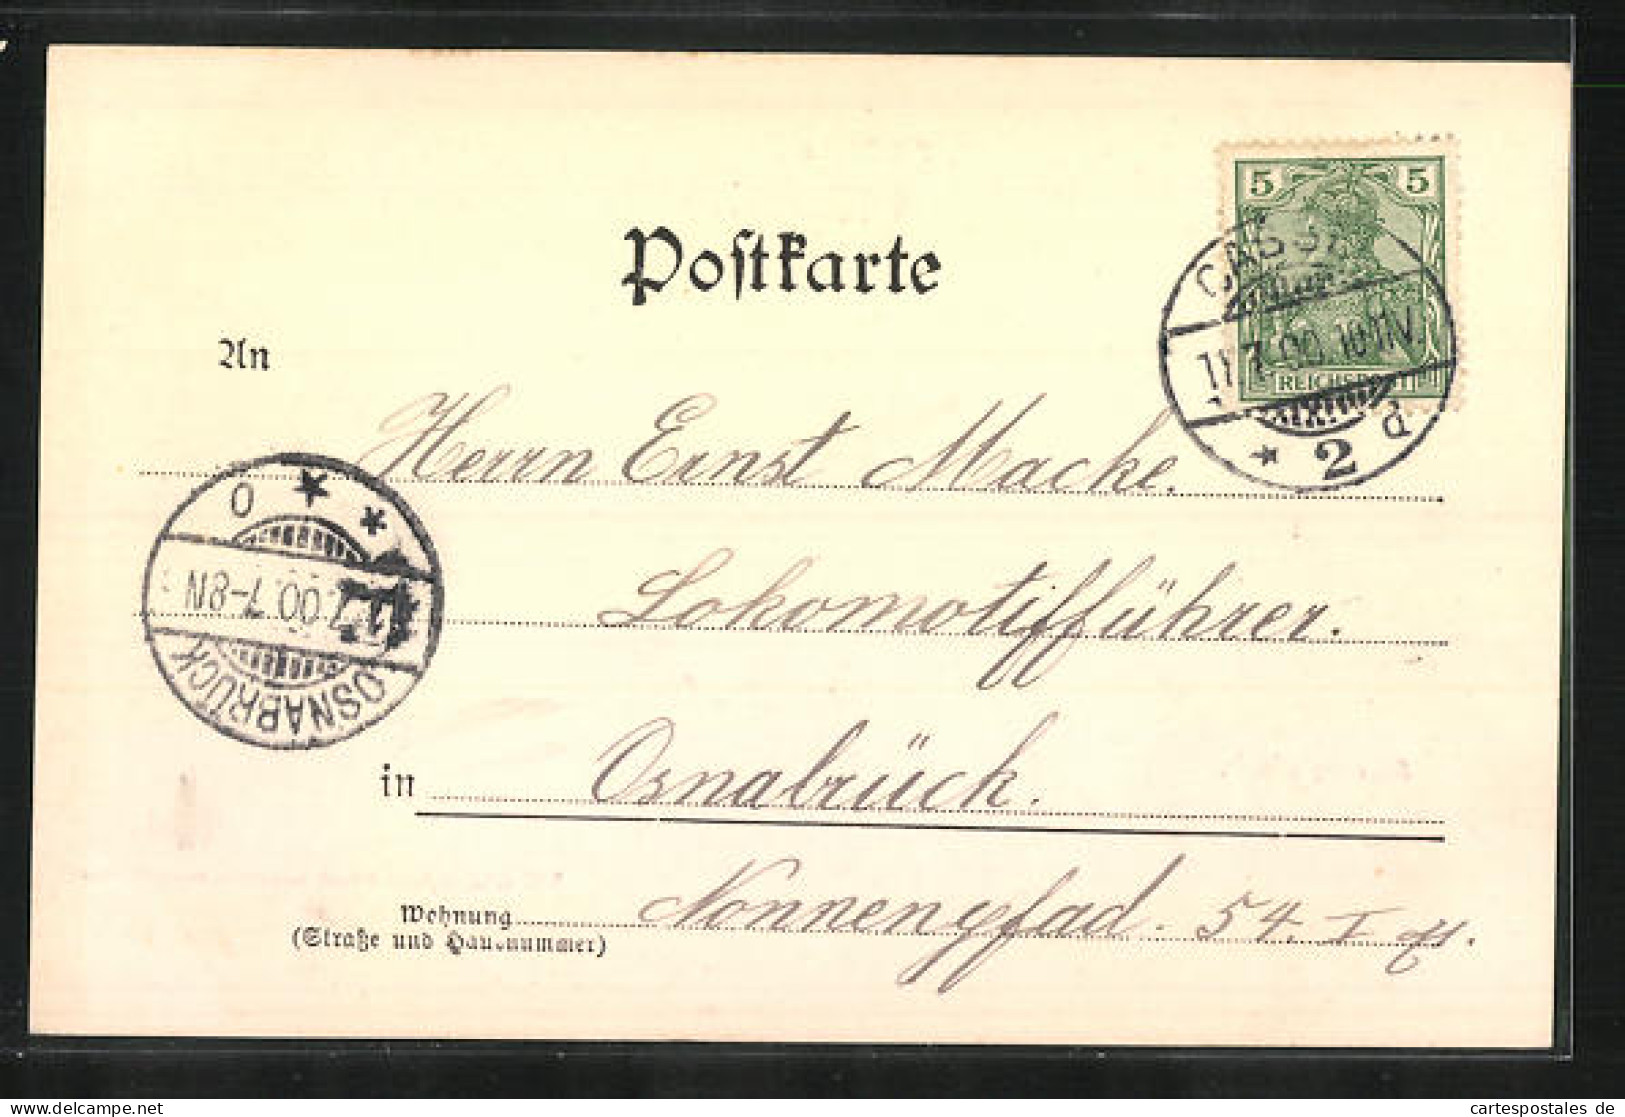 5 5
Postkarte
CASSEL
11.7.00. 10-11V.
REICHSPOST
* 2 d
An
Herrn Ernst Macke.
Lokomotifführer.
O
7.00. 7-8N
OSNABRÜCK
in Osnabrück.
Wohnung
(Straße und Hausnummer)
Nonnenpfad. 54. I
cartespostales de